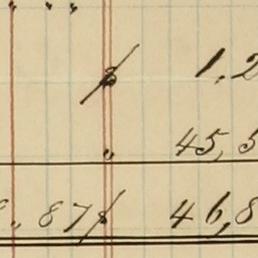 " " "
$ 1.2
" 45,5
. 87 $ 46,8